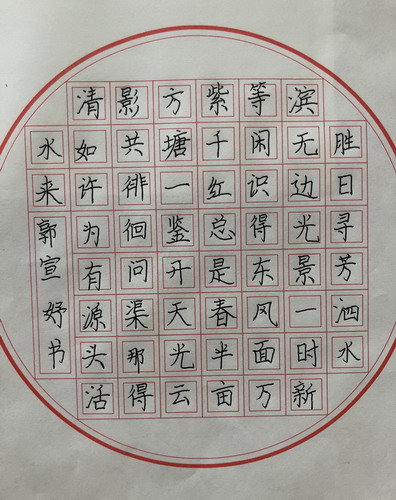 胜日寻芳泗水
滨无边光景一时新
等闲识得东风面万
紫千红总是春半亩
方塘一鉴开天光云
影共徘徊问渠那得
清如许为有源头活
水来郭宣妤书